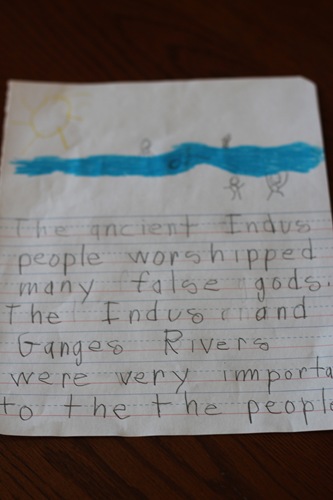 The ancient Indus
people worshipped
many false gods.
The Indus and
Ganges Rivers
were very importa
to the the people